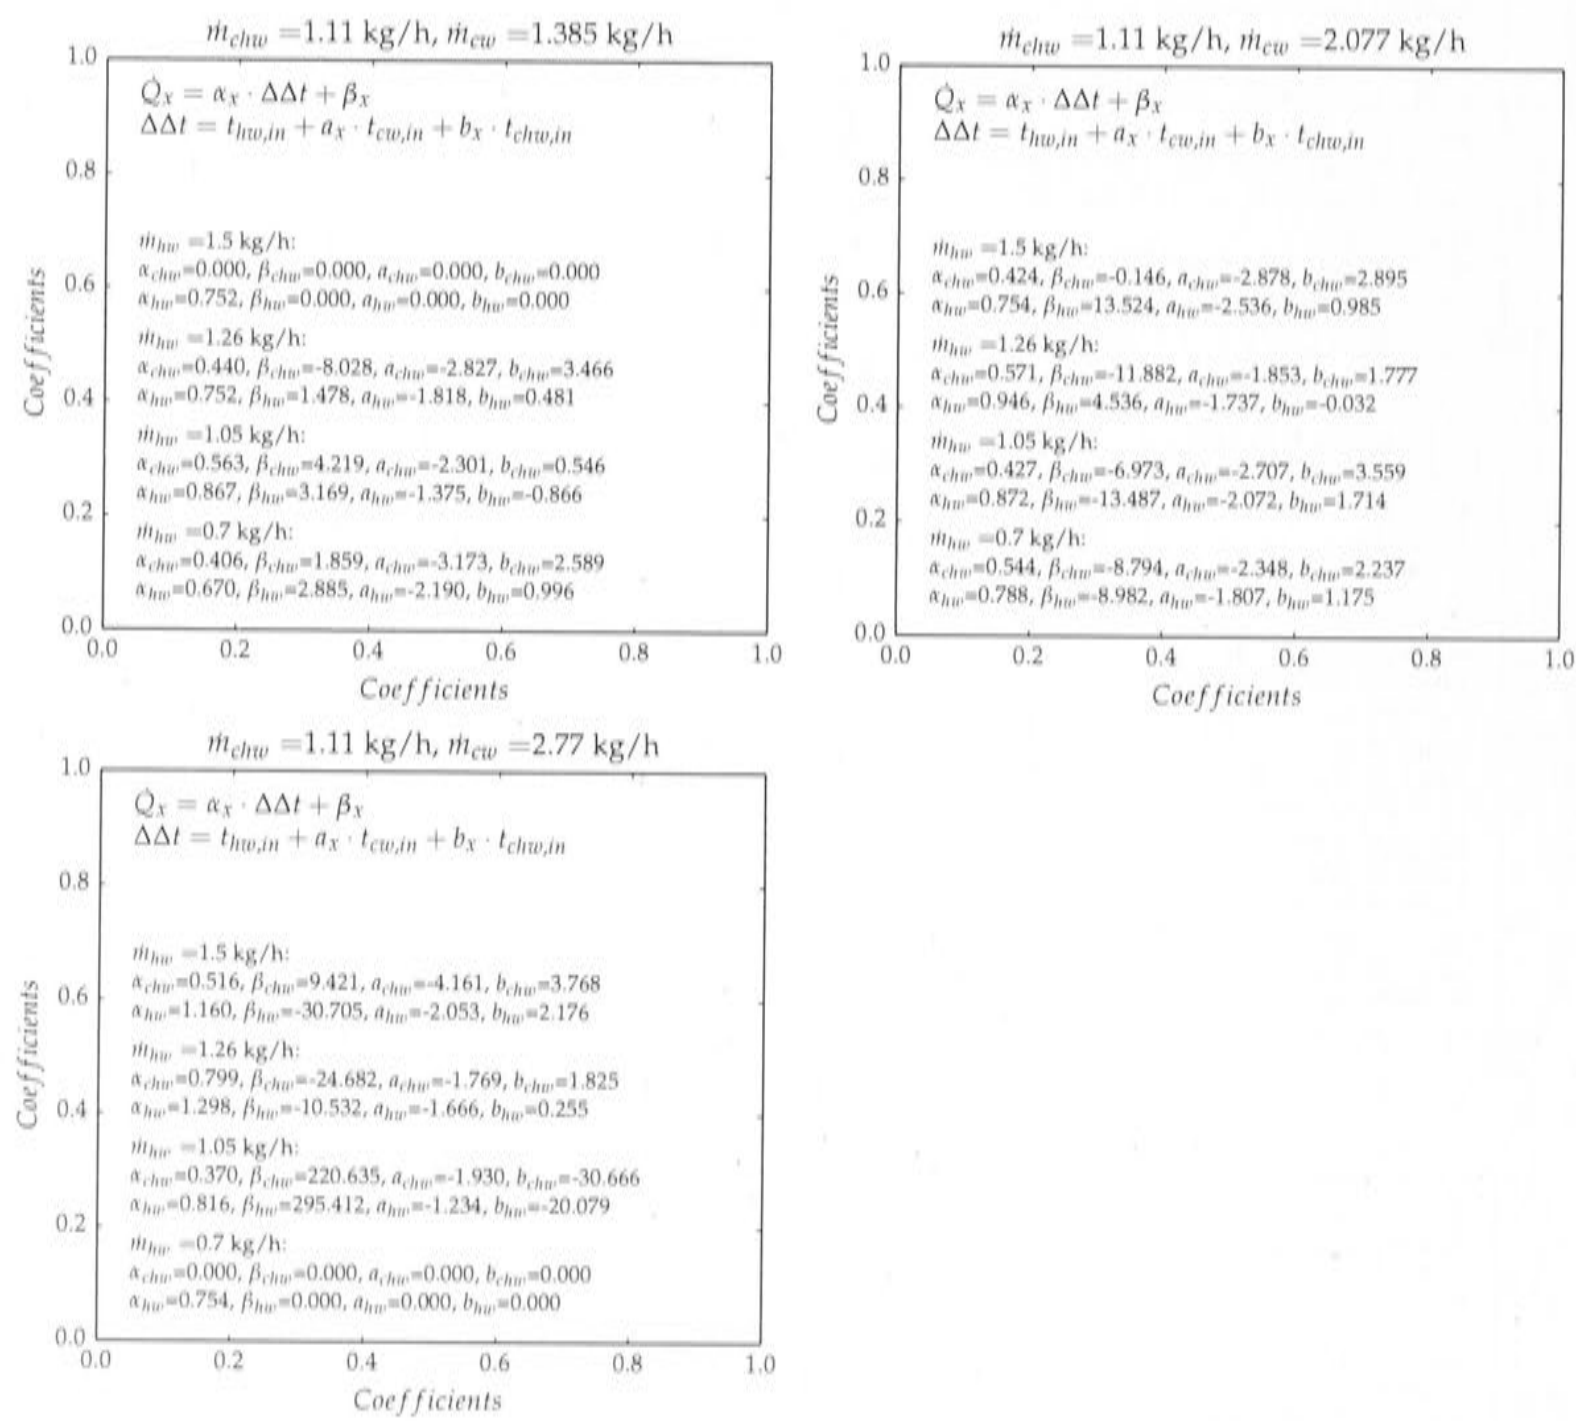 ṁ_chw =1.11 kg/h, ṁ_cw =1.385 kg/h
1.0
Q̇_x = α_x · ΔΔt + β_x
ΔΔt = t_hw,in + a_x · t_cw,in + b_x · t_chw,in
0.8
ṁ_hw =1.5 kg/h:
α_chw=0.000, β_chw=0.000, a_chw=0.000, b_chw=0.000
0.6
α_hw=0.752, β_hw=0.000, a_hw=0.000, b_hw=0.000
ṁ_hw =1.26 kg/h:
α_chw=0.440, β_chw=-8.028, a_chw=-2.827, b_chw=3.466
0.4
α_hw=0.752, β_hw=1.478, a_hw=-1.818, b_hw=0.481
ṁ_hw =1.05 kg/h:
α_chw=0.563, β_chw=4.219, a_chw=-2.301, b_chw=0.546
α_hw=0.867, β_hw=3.169, a_hw=-1.375, b_hw=-0.866
0.2
ṁ_hw =0.7 kg/h:
α_chw=0.406, β_chw=1.859, a_chw=-3.173, b_chw=2.589
α_hw=0.670, β_hw=2.885, a_hw=-2.190, b_hw=0.996
0.0
0.0 0.2 0.4 0.6 0.8 1.0
Coefficients
Coefficients
ṁ_chw =1.11 kg/h, ṁ_cw =2.077 kg/h
1.0
Q̇_x = α_x · ΔΔt + β_x
ΔΔt = t_hw,in + a_x · t_cw,in + b_x · t_chw,in
0.8
ṁ_hw =1.5 kg/h:
α_chw=0.424, β_chw=-0.146, a_chw=-2.878, b_chw=2.895
0.6
α_hw=0.754, β_hw=13.524, a_hw=-2.536, b_hw=0.985
ṁ_hw =1.26 kg/h:
α_chw=0.571, β_chw=-11.882, a_chw=-1.853, b_chw=1.777
0.4
α_hw=0.946, β_hw=4.536, a_hw=-1.737, b_hw=-0.032
ṁ_hw =1.05 kg/h:
α_chw=0.427, β_chw=-6.973, a_chw=-2.707, b_chw=3.559
α_hw=0.872, β_hw=-13.487, a_hw=-2.072, b_hw=1.714
0.2
ṁ_hw =0.7 kg/h:
α_chw=0.544, β_chw=-8.794, a_chw=-2.348, b_chw=2.237
α_hw=0.788, β_hw=-8.982, a_hw=-1.807, b_hw=1.175
0.0
0.0 0.2 0.4 0.6 0.8 1.0
Coefficients
Coefficients
ṁ_chw =1.11 kg/h, ṁ_cw =2.77 kg/h
1.0
Q̇_x = α_x · ΔΔt + β_x
ΔΔt = t_hw,in + a_x · t_cw,in + b_x · t_chw,in
0.8
ṁ_hw =1.5 kg/h:
α_chw=0.516, β_chw=9.421, a_chw=-4.161, b_chw=3.768
0.6
α_hw=1.160, β_hw=-30.705, a_hw=-2.053, b_hw=2.176
ṁ_hw =1.26 kg/h:
α_chw=0.799, β_chw=-24.682, a_chw=-1.769, b_chw=1.825
0.4
α_hw=1.298, β_hw=-10.532, a_hw=-1.666, b_hw=0.255
ṁ_hw =1.05 kg/h:
α_chw=0.370, β_chw=220.635, a_chw=-1.930, b_chw=-30.666
α_hw=0.816, β_hw=295.412, a_hw=-1.234, b_hw=-20.079
0.2
ṁ_hw =0.7 kg/h:
α_chw=0.000, β_chw=0.000, a_chw=0.000, b_chw=0.000
α_hw=0.754, β_hw=0.000, a_hw=0.000, b_hw=0.000
0.0
0.0 0.2 0.4 0.6 0.8 1.0
Coefficients
Coefficients